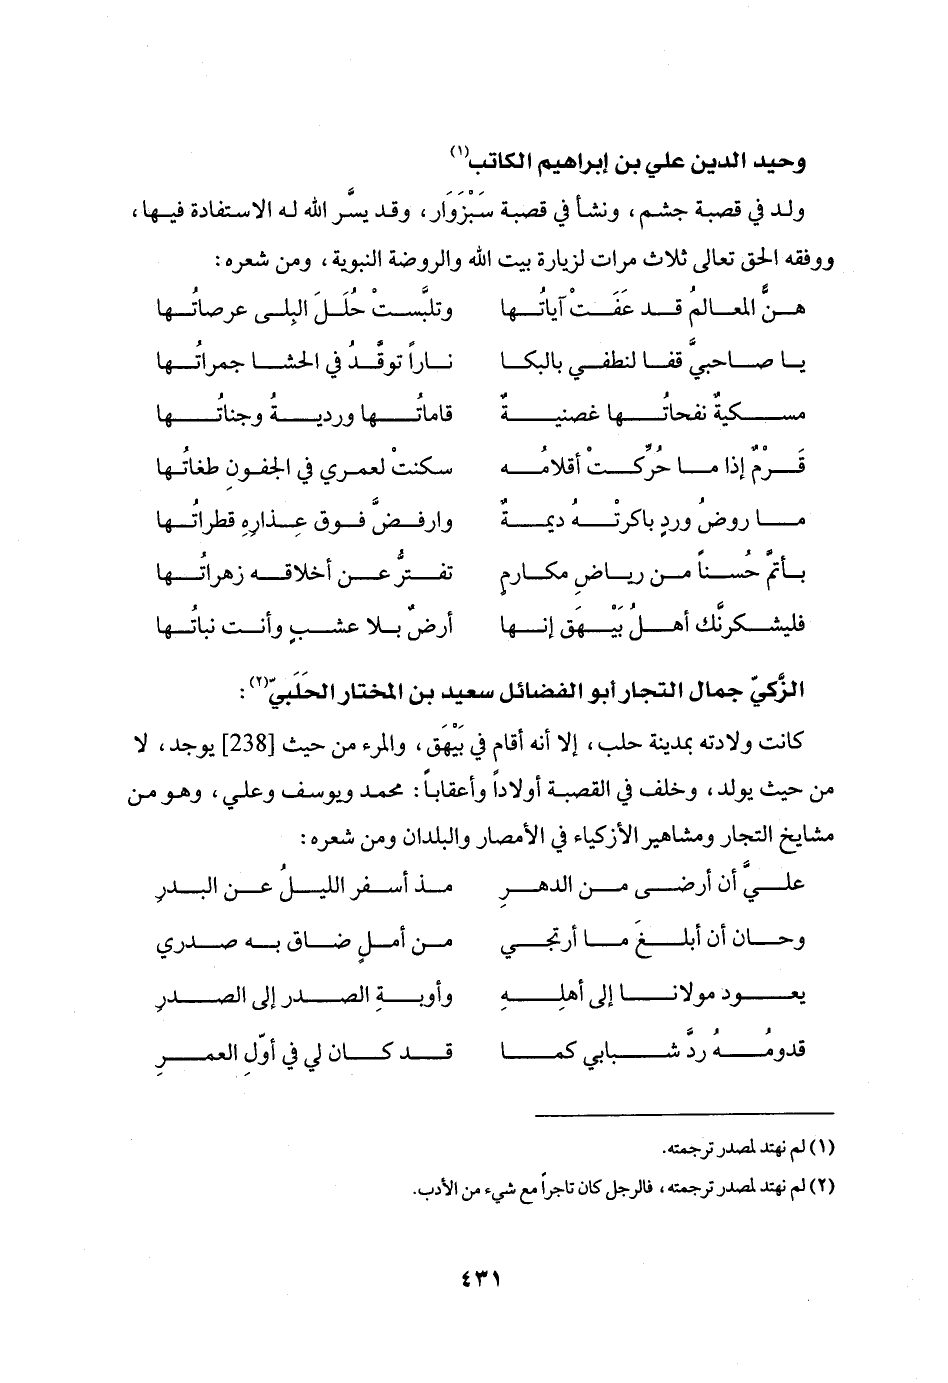 وحيد الدين علي بن إبراهيم الكاتب(١)
ولد في قصبة جشم، ونشأ في قصبة سَبْزَوَار، وقد يسَّر الله له الاستفادة فيها،
ووفقه الحق تعالى ثلاث مرات لزيارة بيت الله والروضة النبوية، ومن شعره:
هـنَّ المعـالمُ قـد عَفَـتْ آياتُـها وتلبَّسـتْ حُلَـلَ البِلـى عرصاتُـها
يـا صـاحبيَّ قفـا لنطفـي بالبكـا نـاراً توقَّـدُ في الحشـا جمراتُـها
مسـكيةٌ نفحاتُـها غصنيـةٌ قاماتُـها ورديـةٌ وجناتُـها
قَـرْمٌ إذا مـا حرِّكـتْ أقلامُـه سكنتْ لعمـري في الجفـونِ طغاتُـها
مـا روضُ وردٍ باكرتْـهُ ديمـةٌ وارفـضَّ فـوق عِـذارهِ قطراتُـها
بـأتمَّ حُسـناً مـن ريـاضِ مكـارمٍ تفـترُّ عـن أخلاقـه زهراتُـها
فليشـكرنَّك أهـلُ بَيْـهَق إنـها أرضٌ بـلا عشـبٍ وأنـت نباتُـها
الزَّكيّ جمال التجار أبو الفضائل سعيد بن المختار الحَلَبيّ(٢):
كانت ولادته بمدينة حلب، إلا أنه أقام في بَيْهَق، والمرء من حيث [238] يوجد، لا
من حيث يولد، وخلف في القصبة أولاداً وأعقاباً: محمد ويوسف وعلي، وهو من
مشايخ التجار ومشاهير الأزكياء في الأمصار والبلدان ومن شعره:
علـيَّ أن أرضـى مـن الدهـرِ مـذ أسـفر الليـلُ عـن البـدرِ
وحـان أن أبلـغَ مـا أرتجـي مـن أمـلٍ ضـاق بـه صـدري
يعـود مولانـا إلى أهلِـهِ وأوبـةِ الصـدرِ إلى الصـدرِ
قدومُـهُ ردَّ شـبابي كمـا قـد كـان لي في أوّلِ العمـرِ
(١) لم نهتد لمصدر ترجمته.
(٢) لم نهتد لمصدر ترجمته، فالرجل كان تاجراً مع شيء من الأدب.
٤٣١